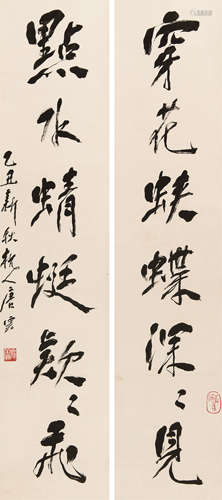 穿花蛱蝶深〻見
點水蜻蜓款〻飛
乙丑新秋 杭人唐雲